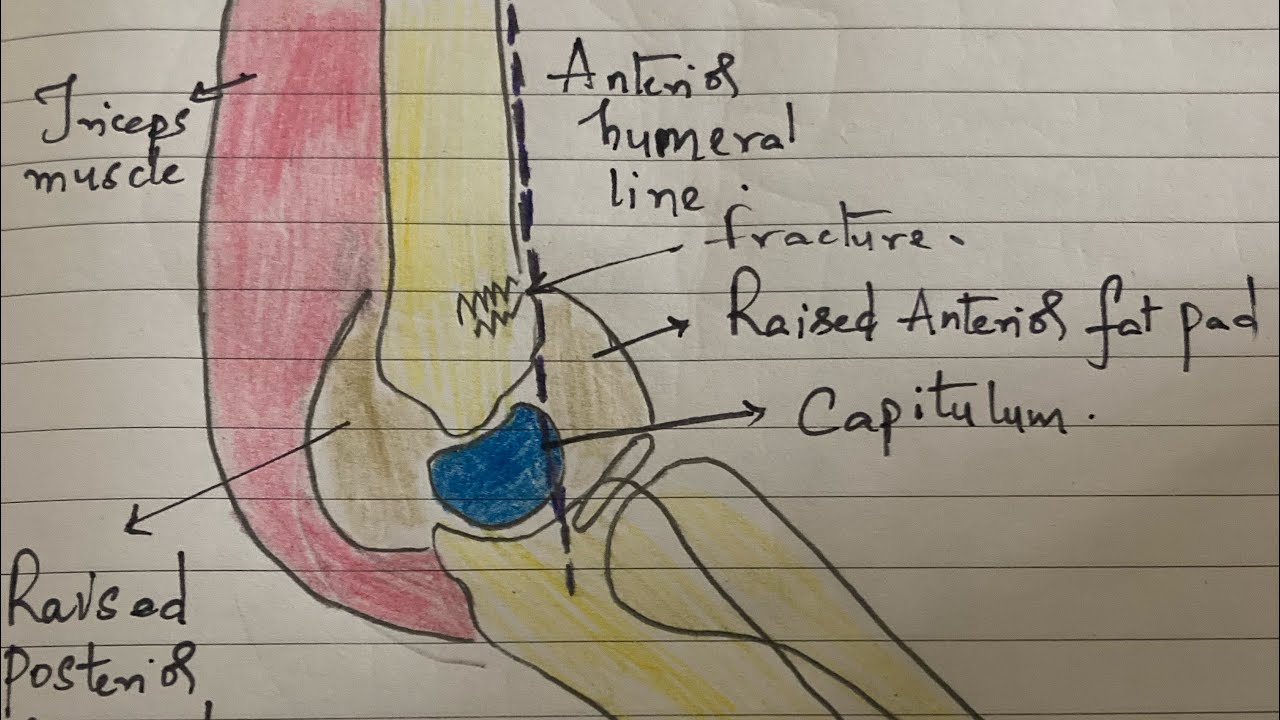 Triceps
muscle
Anterior
humeral
line.
fracture.
Raised Anterior fat pad
Capitulum.
Raised
posterior